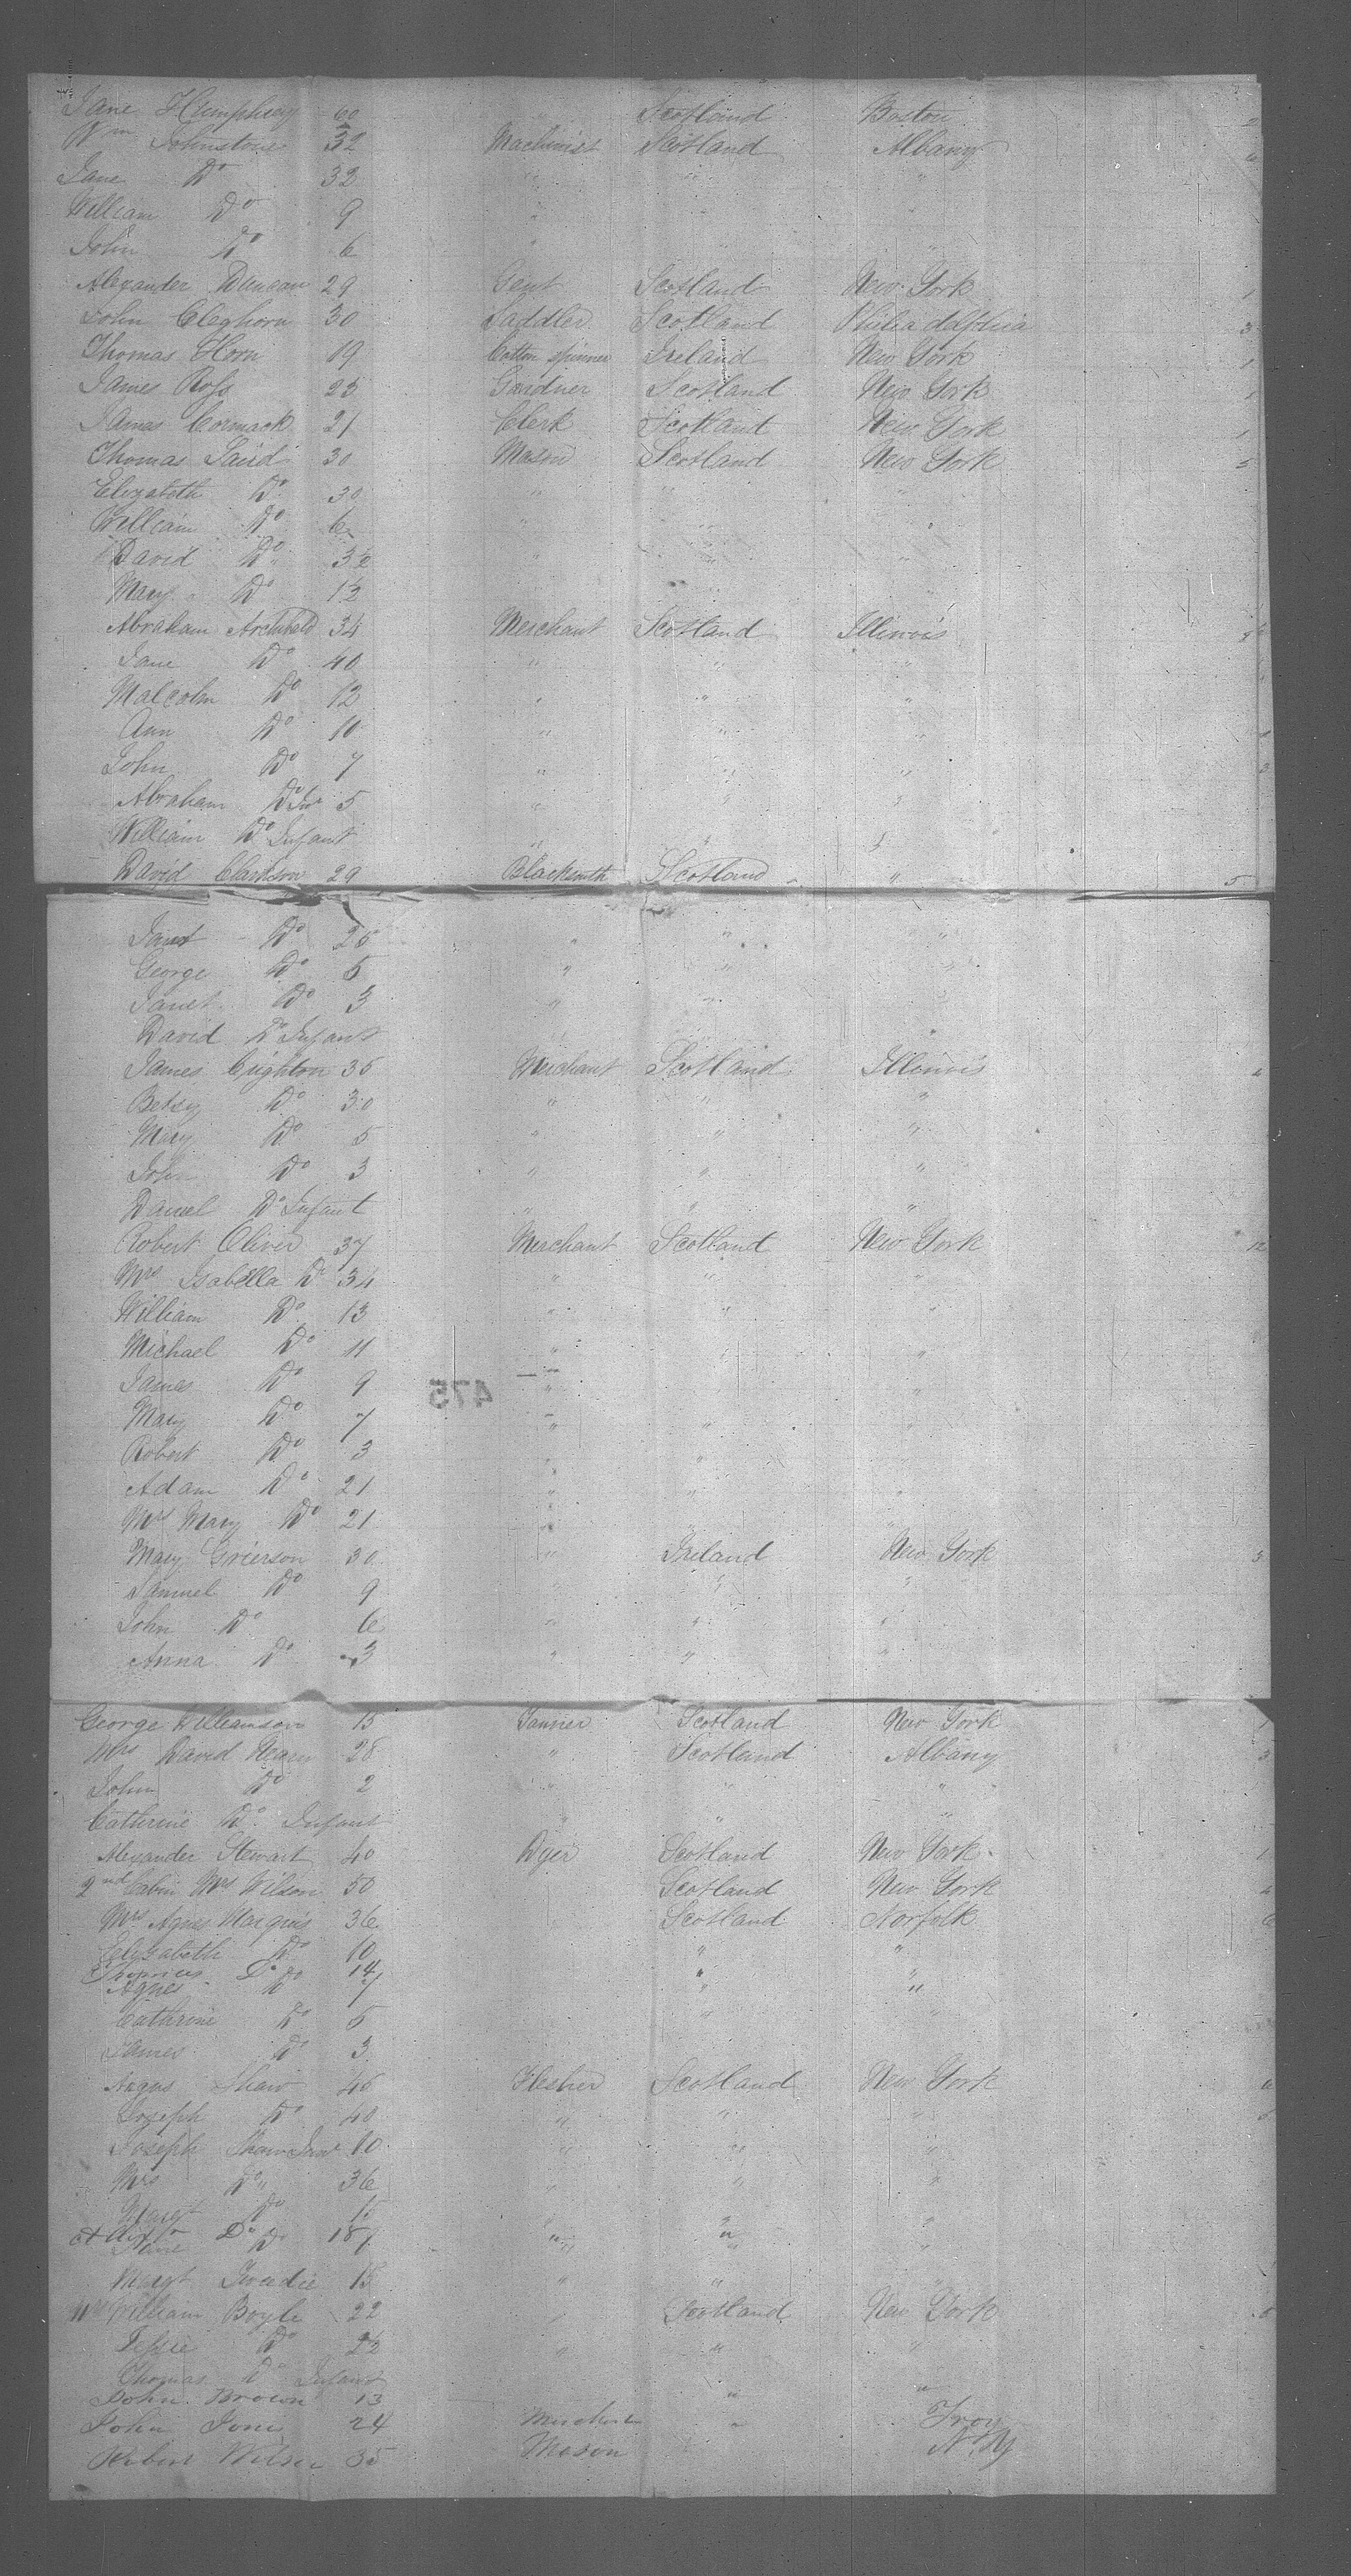 Jane Humphrey 60 " Scotland Boston 2
Wm Johnstone 32 Machinist Scotland Albany
Jane Do 32 " " "
William Do 9 " "
John Do 6 " " "
Alexander Duncan 29 Gent Scotland New York 1
John Cleghorn 30 Saddler Scotland Philiadalphia 3
Thomas Horn 19 Cotton spinner Ireland New York 1
James Ross 25 Gardner Scotland New York 1
James Cormack 21 Clerk Scotland New York 1
Thomas Laird 30 Mason Scotland New York 5
Elizabeth Do 30 " " "
William Do 6 " " "
David Do 3½ " " "
Mary Do 1½ "
Abraham Archbald 34 Merchant Scotland Illinois
Jane Do 40 " " "
Malcolm Do 12 " " "
Ann Do 10 " " "
John Do 7 " " "
Abraham Do Junr 5 " " "
William Do Infant " " "
David Clarkson 29 Blacksmith Scotland " 5
Janet Do 25 " " "
George Do 5 " " "
Janet Do 3 " "
David Do Infant
James Crighton 35 Merchant Scotland Illinois
Betsy Do 30 " " "
Mary Do 5 " " "
John Do 3 " " "
Daniel Do Infant " " "
Robert Oliver 37 Merchant Scotland New York 12
Mrs Isabella Do 34 " " "
William Do 13 " " "
Michael Do 11 " "
James Do 9 " "
475
Mary Do 7 " " "
Robert Do 3 " "
Adam Do 21 " " "
Mrs Mary Do 21 " " "
Mary Grierson 30 " Ireland New York
Samuel Do 9 " " "
John Do 6 " " "
Anna Do 3 " " "
George Williamson 15 Tanner Scotland New York 1
Mrs David Hearn 28 " Scotland Albany 3
John Do 2 " " "
Catherine Do Infant " " "
Alexander Stewart 40 Dyer Scotland New York 1
2nd Cabin Mrs Wilson 50 Scotland New York
Mrs Agnes Marquis 36 Scotland Norfolk 6
Elizabeth Do 10 " "
Do 14 " "
Agnes Do 7 " "
Catherine Do 5 " "
James Do 3
Angus Shaw 45 Flesher Scotland New York
Joseph Do 40 " " "
Joseph Shaw Junr 10 " " "
Mrs Do 36 " " "
Margt Do 15 " " "
Do 18 " "
Jane Do 7 " " "
Margt Tweedie 15 " " "
Mrs William Boyle 22 " Scotland New York
Jessie Do 2½ " " "
Thomas Do Infant
John Brown 13 " "
John Jones 24 " Troy
Robert Wilson 35 Mason N. Y